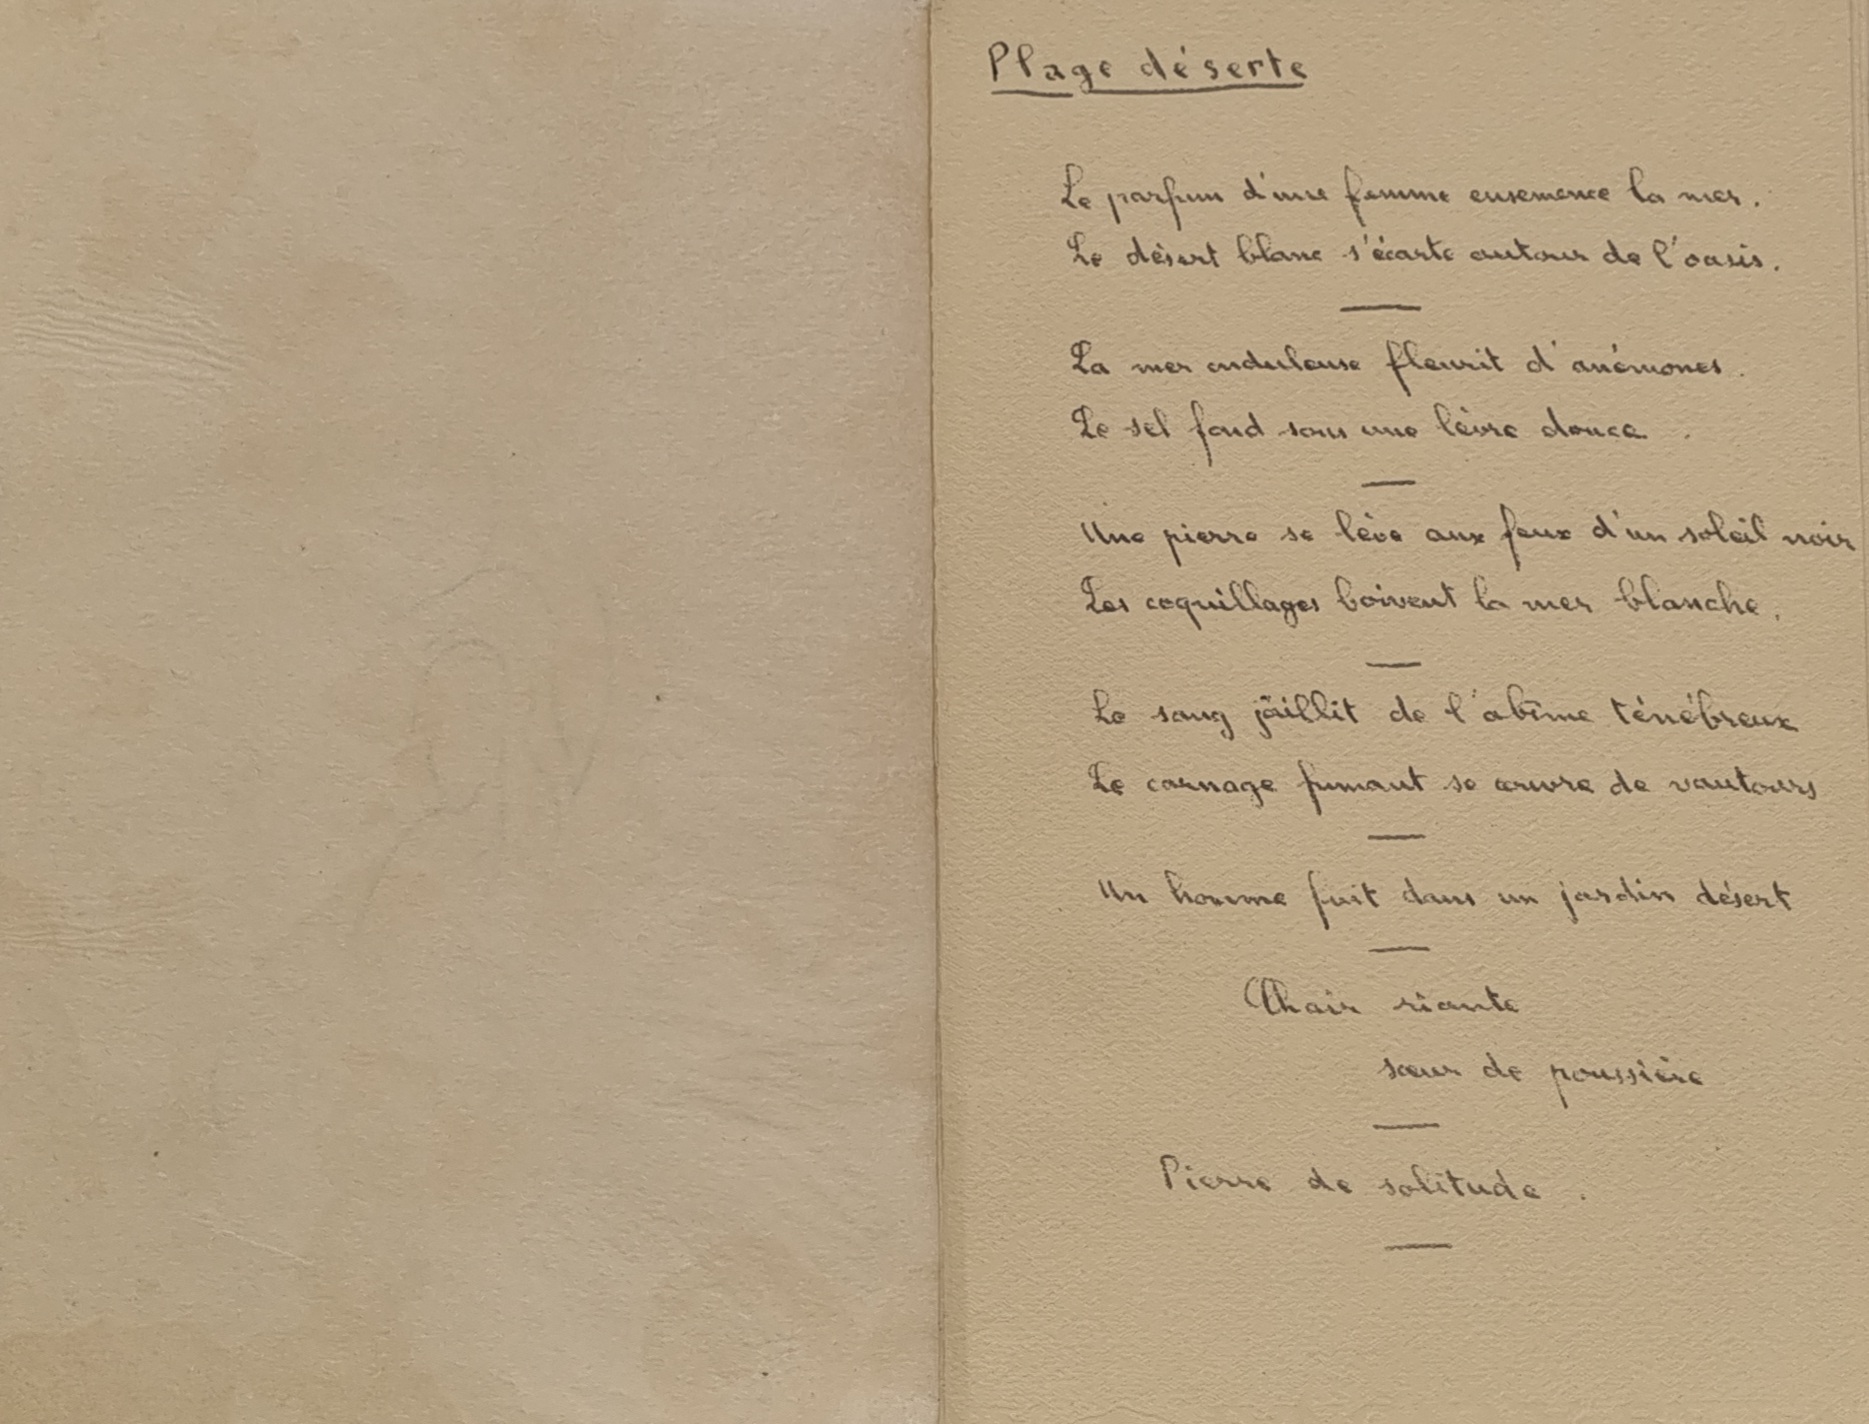 Plage déserte
Le parfum d'une femme ensemence la mer.
Le désert blanc s'écarte autour de l'oasis.
La mer onduleuse fleurit d'anémones.
Le sel fond sous une lèvre douce.
Une pierre se lève aux feux d'un soleil noir
Les coquillages boivent la mer blanche.
Le sang jaillit de l'abîme ténébreux
Le carnage fumant se couvre de vautours
Un homme fuit dans un jardin désert
Chair riante
sœur de poussière
Pierre de solitude.